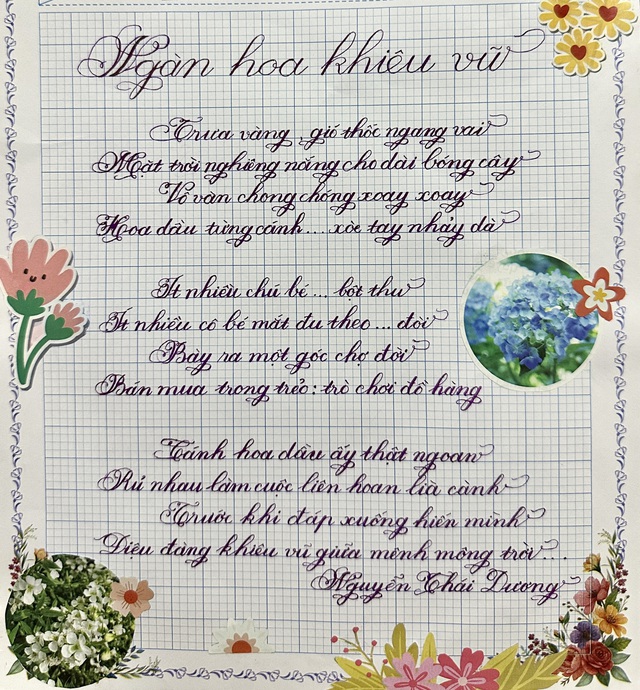 Ngàn hoa khiêu vũ
Trưa vàng, gió thốc ngang vai
Mặt trời nghiêng nắng cho dài bóng cây
Vô vàn chong chóng xoay xoay
Hoa dầu từng cánh... xòe tay nhảy dù
Ít nhiều chú bé... bột thư
Ít nhiều cô bé mắt đu theo... đòi
Bày ra một góc chợ đời
Bán mua trong trẻo: trò chơi đồ hàng
Cánh hoa dầu ấy thật ngoan
Rủ nhau làm cuộc liên hoan lià cành
Trước khi đáp xuống hiến mình
Diêu đàng khiêu vũ giữa mênh mông trời...
Nguyễn Thái Dương